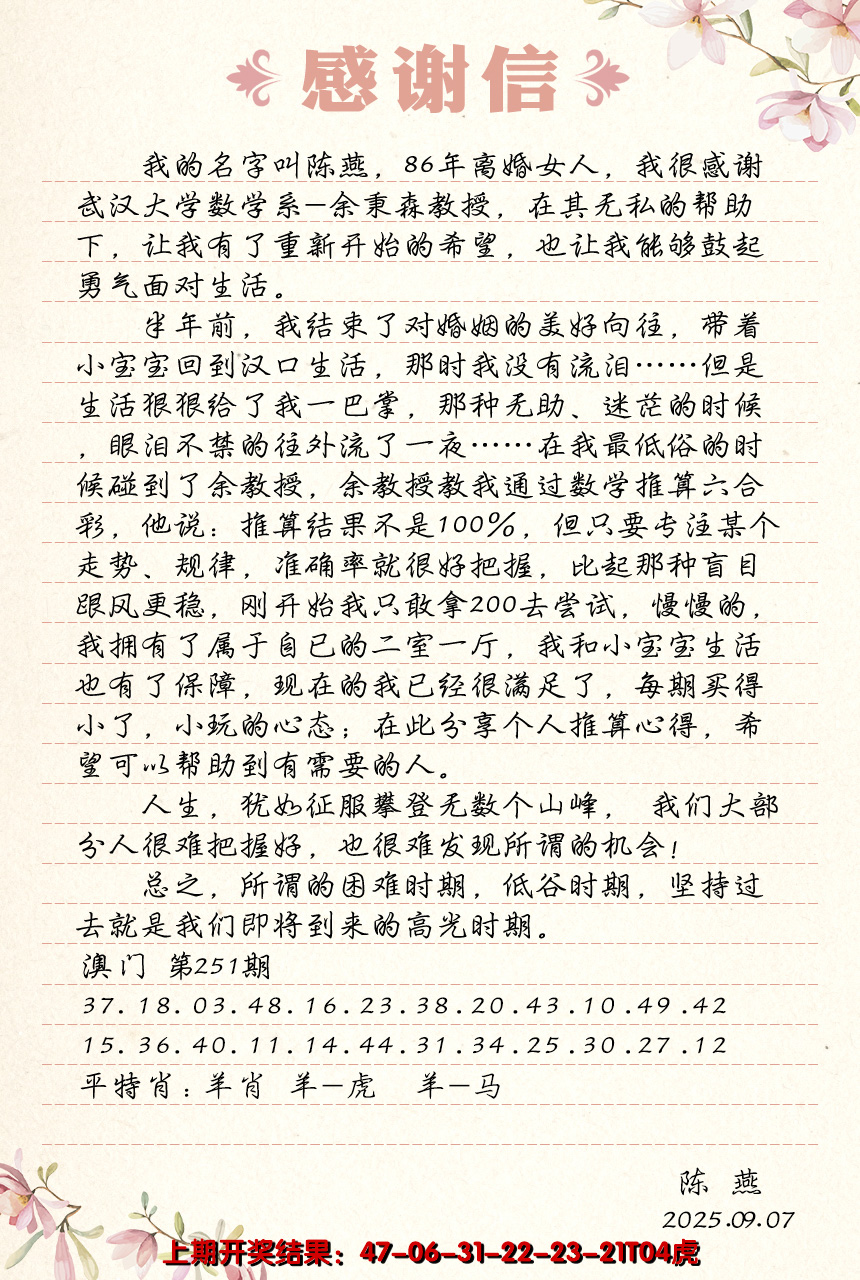 感谢信
我的名字叫陈燕，86年离婚女人，我很感谢
武汉大学数学系—余秉森教授，在其无私的帮助
下，让我有了重新开始的希望，也让我能够鼓起
勇气面对生活。
半年前，我结束了对婚姻的美好向往，带着
小宝宝回到汉口生活，那时我没有流泪……但是
生活狠狠给了我一巴掌，那种无助、迷茫的时候
，眼泪不禁的往外流了一夜……在我最低俗的时
候碰到了余教授，余教授教我通过数学推算六合
彩，他说：推算结果不是100%，但只要专注某个
走势、规律，准确率就很好把握，比起那种盲目
跟风更稳，刚开始我只敢拿200去尝试，慢慢的，
我拥有了属于自已的二室一厅，我和小宝宝生活
也有了保障，现在的我已经很满足了，每期买得
小了，小玩的心态；在此分享个人推算心得，希
望可以帮助到有需要的人。
人生，犹如征服攀登无数个山峰， 我们大部
分人很难把握好，也很难发现所谓的机会！
总之，所谓的困难时期，低谷时期，坚持过
去就是我们即将到来的高光时期。
澳门 第251期
37.18.03.48.16.23.38.20.43.10.49.42
15.36.40.11.14.44.31.34.25.30.27.12
平特肖：羊肖 羊—虎 羊—马
陈 燕
2025.09.07
上期开奖结果：47-06-31-22-23-21T04虎